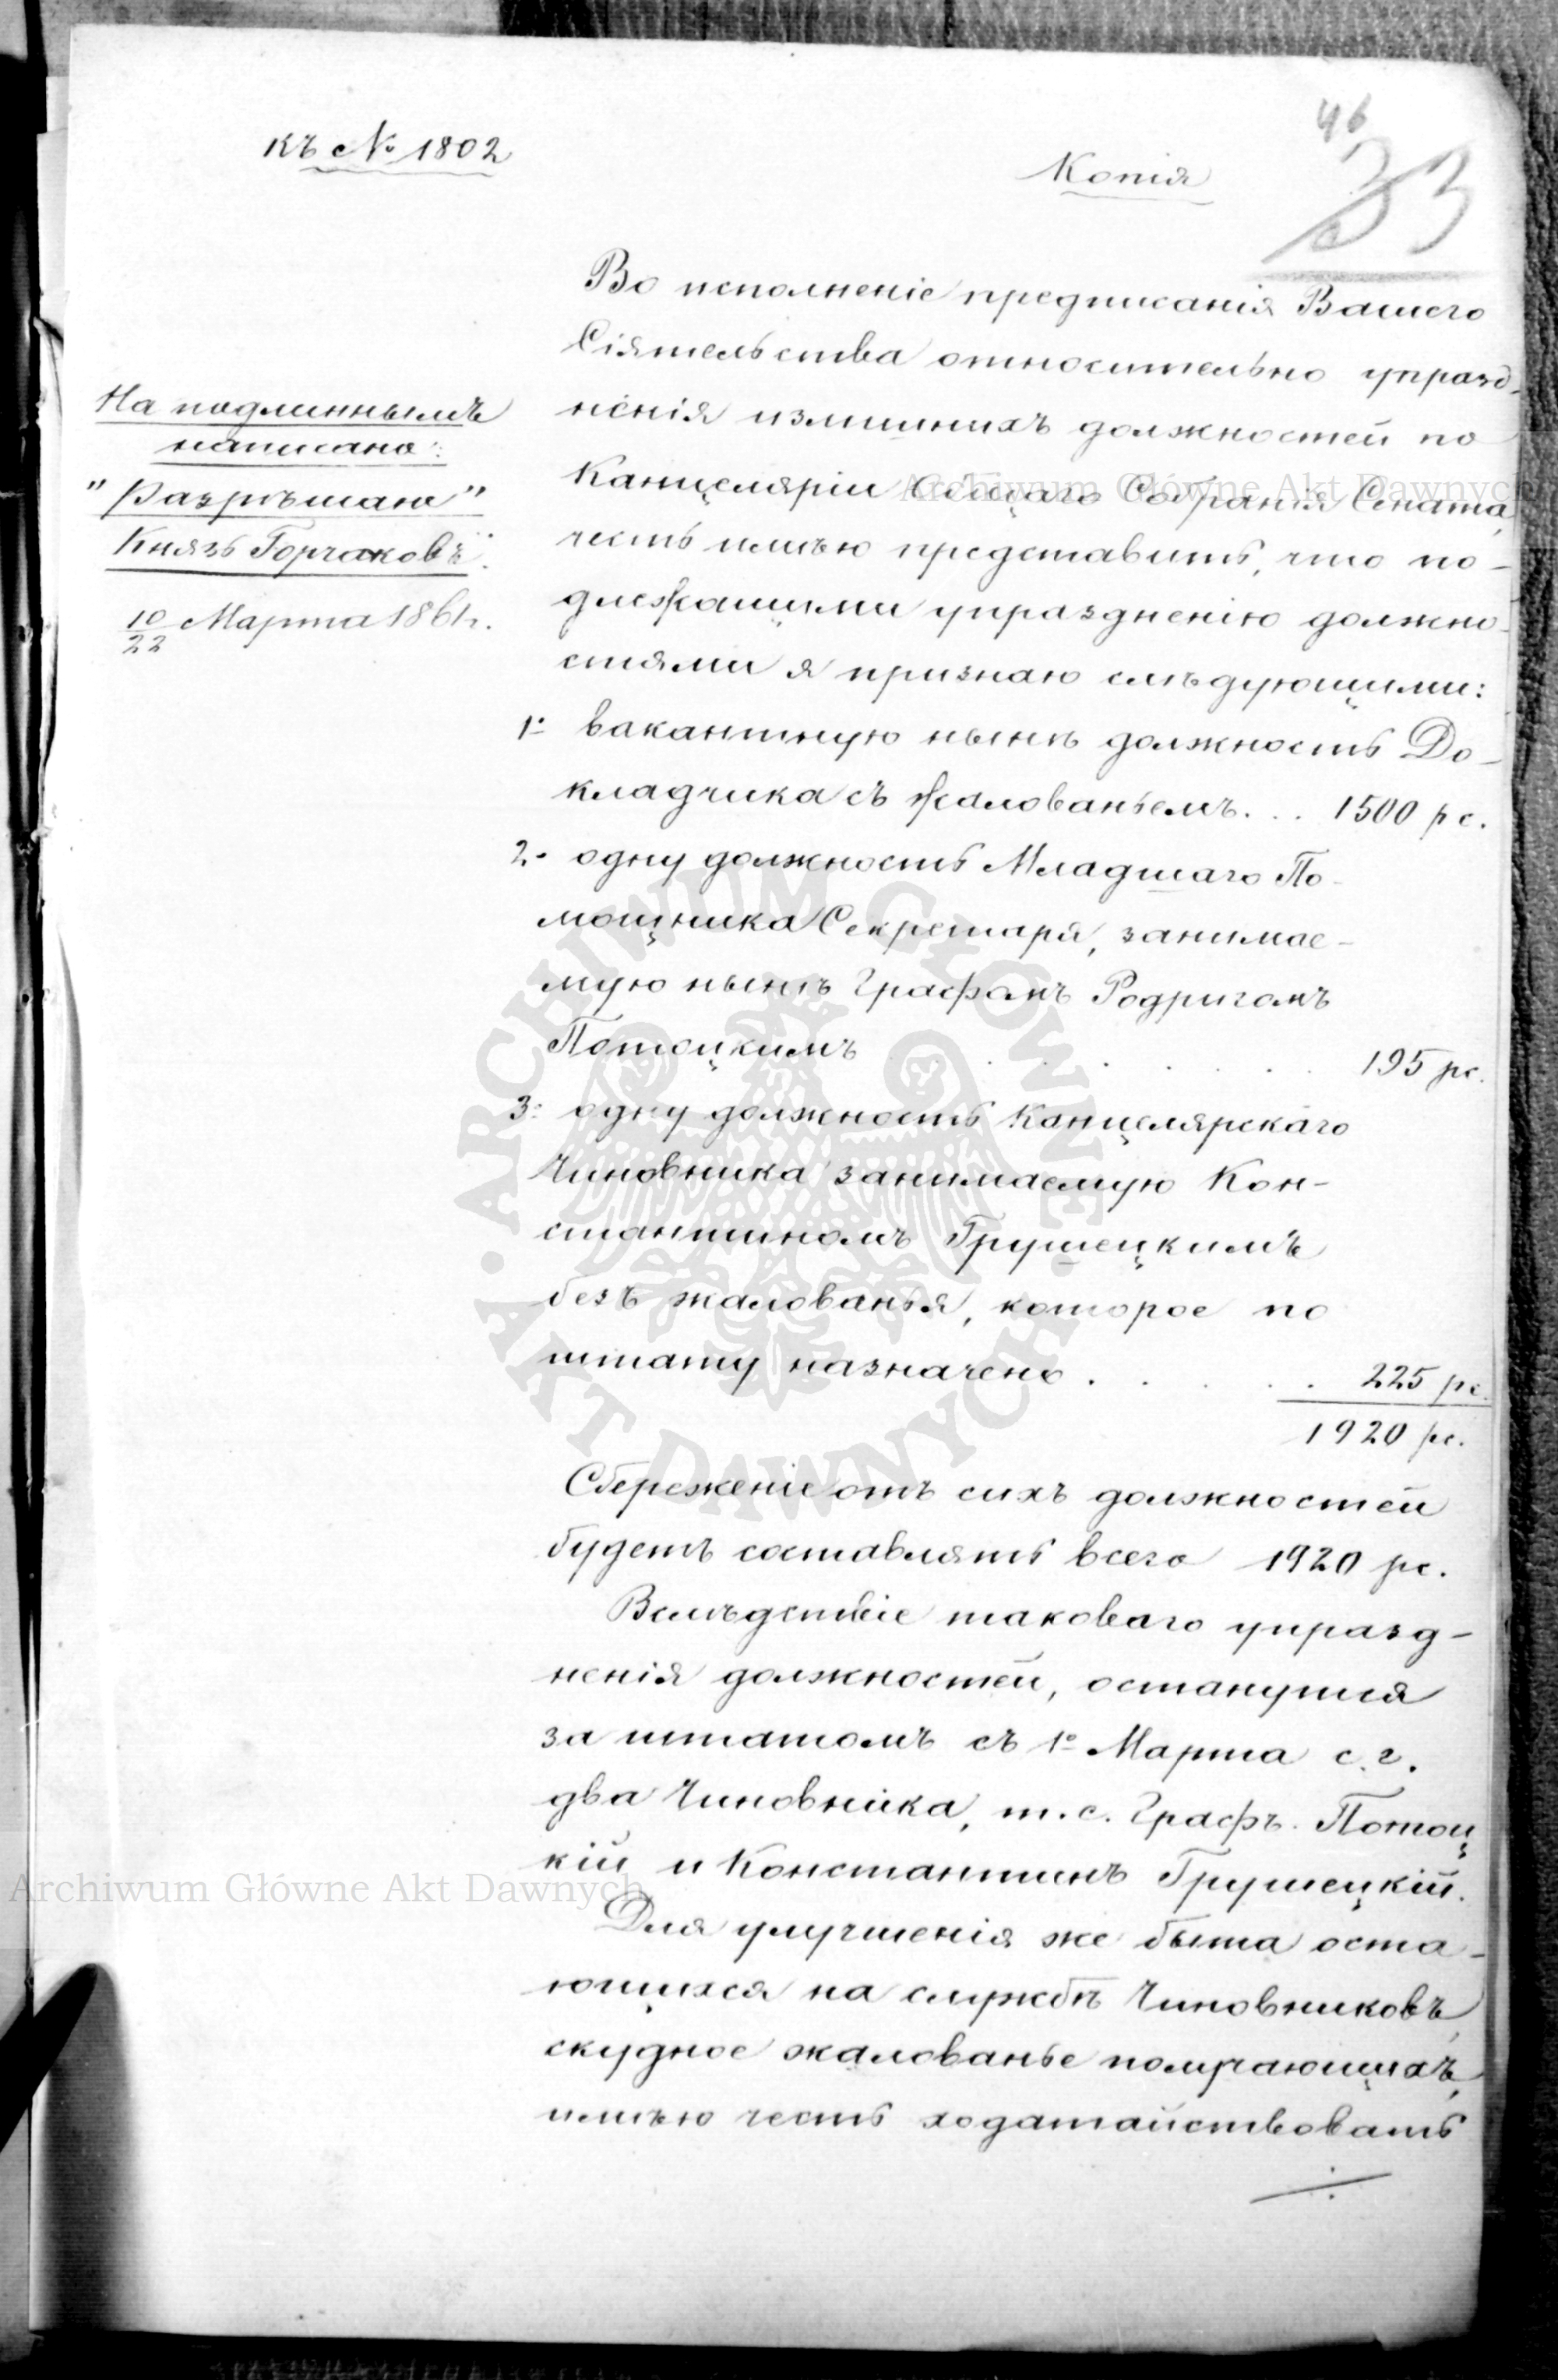 къ № 1802
Копія
46
33
На подлинномъ
написано:
"Разрѣшаю"
Князь Горчаковъ.
10/22 Марта 1861 г.
Во исполненіе предписанія Вашего
Сіятельства относительно упразд-
ненія излишнихъ должностей по
Канцеляріи Общаго Собранія Сената,
честь имѣю представить, что по-
длежащими упраздненію должно-
стями я признаю слѣдующими:
1º вакантную нынѣ должность До-
кладчика съ жалованьемъ. . . 1500 рс.
2º одну должность Младшаго По-
мощника Секретаря, занимае-
мую нынѣ Графомъ Родригомъ
Потоцкимъ . . . . . . . 195 рс.
3º одну должность Канцелярскаго
Чиновника занимаемую Кон-
стантиномъ Грушецкимъ
безъ жалованья, которое по
штату назначено . . . . . 225 рс.
1920 рс.
Сбереженіе отъ сихъ должностей
будетъ составлять всего 1920 рс.
Вслѣдствіе таковаго упразд-
ненія должностей, останутся
за штатомъ съ 1º Марта с. г.
два Чиновника, т. е. Графъ Потоц
кій и Константинъ Грушецкій.
Для улучшенія же быта оста-
ющихся на службѣ Чиновниковъ,
скудное жалованье получающихъ,
имѣю честь ходатайствовать
Archiwum Główne Akt Dawnych
ARCHIWUM GŁÓWNE · AKT DAWNYCH ·
Archiwum Główne Akt Dawnych